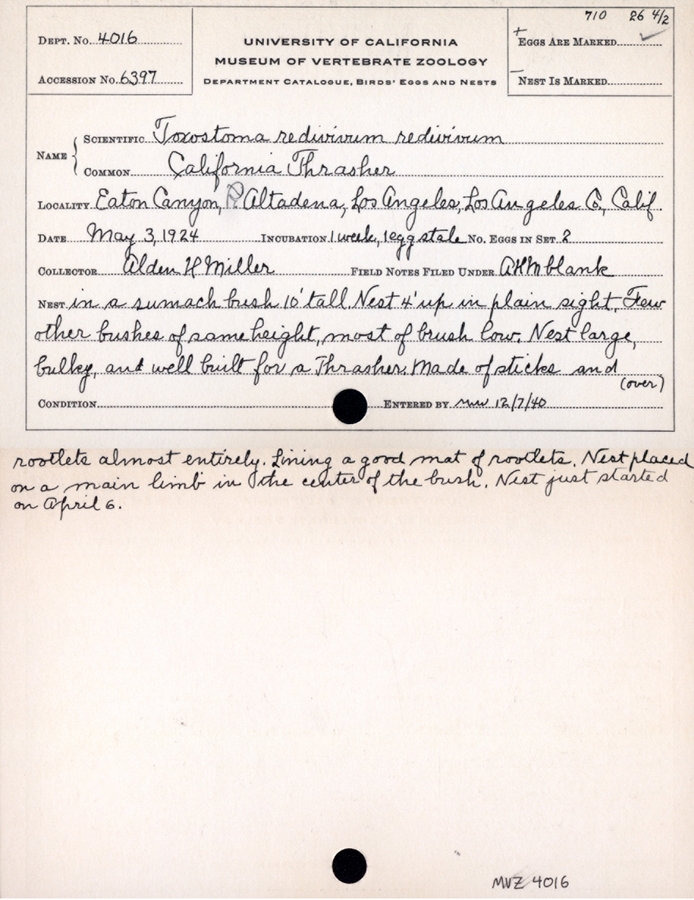 710 26 4/2
DEPT. NO. 4016
UNIVERSITY OF CALIFORNIA
MUSEUM OF VERTEBRATE ZOOLOGY
DEPARTMENT CATALOGUE, BIRDS' EGGS AND NESTS
+ EGGS ARE MARKED ✓
ACCESSION NO. 6397
– NEST IS MARKED
NAME { SCIENTIFIC Toxostoma redivivum redivivum
COMMON California Thrasher
LOCALITY Eaton Canyon, Altadena, Los Angeles, Los Angeles Co, Calif
DATE May 3, 1924 INCUBATION 1 week, 1 egg stale NO. EGGS IN SET 2
COLLECTOR Alden H Miller FIELD NOTES FILED UNDER AHM blank
NEST in a sumach bush 10' tall. Nest 4' up in plain sight. Few
other bushes of same height, most of brush low. Nest large,
bulky, and well built for a Thrasher. Made of sticks and
(over)
CONDITION ENTERED BY mw 12/7/40
rootlets almost entirely. Lining a good mat of rootlets. Nest placed
on a main limb in the center of the bush. Nest just started
on April 6.
MVZ 4016